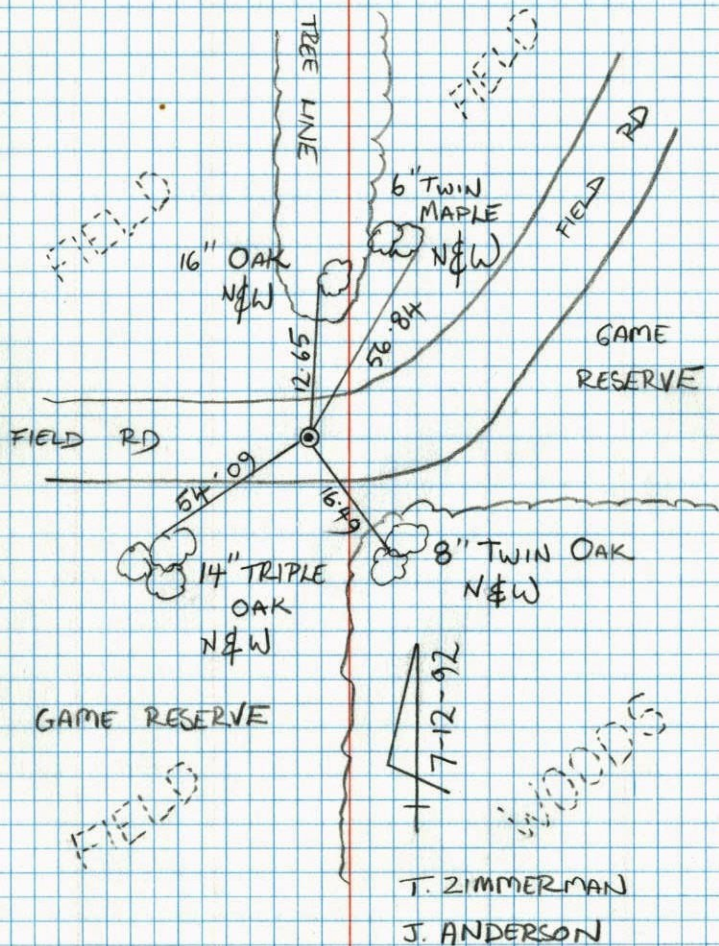 TREE LINE
FIELD
FIELD
FIELD RD
6" TWIN
MAPLE
N&W
16" OAK
N&W
GAME
RESERVE
FIELD RD
54.09
16.49
14" TRIPLE
OAK
N&W
8" TWIN OAK
N&W
GAME RESERVE
7-12-92
WOODS
FIELD
T. ZIMMERMAN
J. ANDERSON